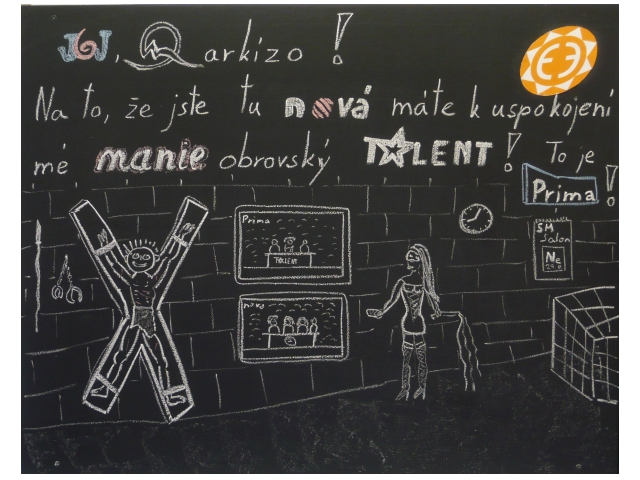 JOJ, Markízo!
Na to, že jste tu nová máte k uspokojení
mé manie obrovský TALENT! To je
Prima!
Prima
TALENT
nova
SM
Salon
Ne